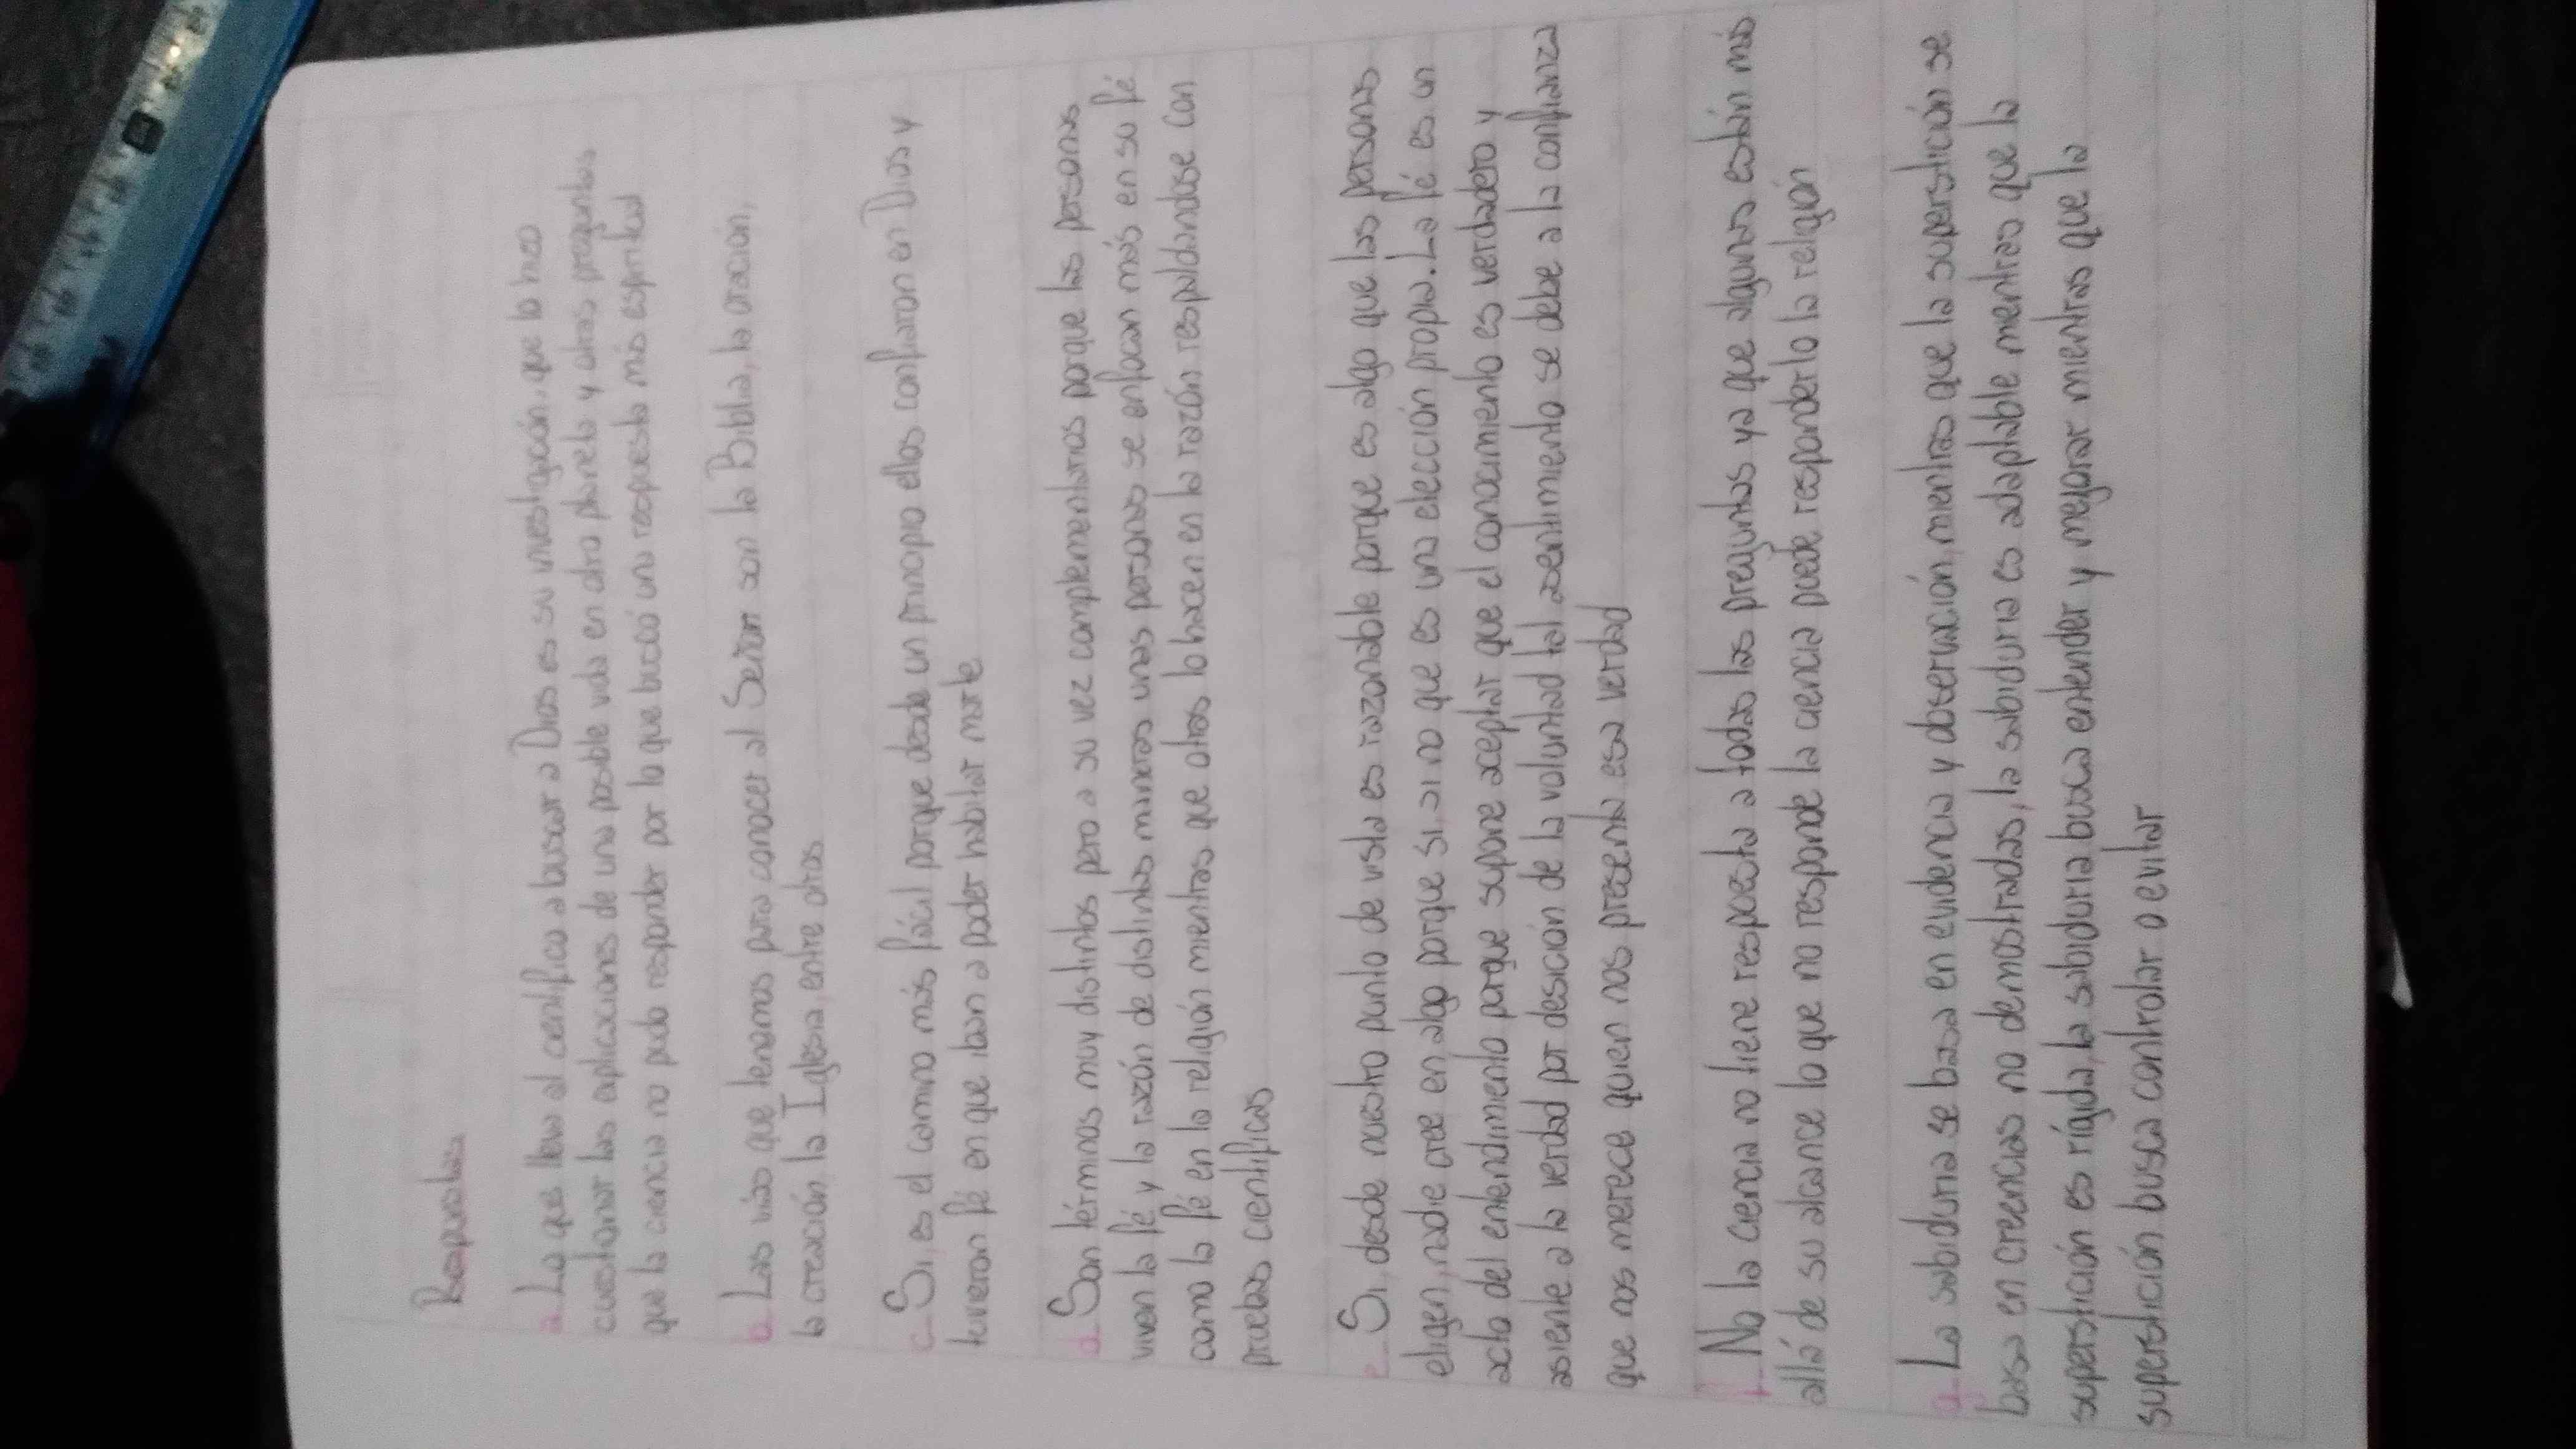 Respuestas
a- Lo que lleva al científico a buscar a Dios es su investigación, que lo hizo
cuestionar las explicaciones de una posible vida en otro planeta y otras preguntas
que la ciencia no pudo responder por lo que buscó una respuesta más espiritual
b- Las vías que tenemos para conocer al Señor son la Biblia, la oración,
la creación, la Iglesia, entre otras
c- Si, es el camino más fácil porque desde un principio ellos confiaron en Dios y
tuvieron fé en que iban a poder habitar marte
d- Son términos muy distintos pero a su vez complementarios porque las personas
viven la fé y la razón de distintas maneras unas personas se enfocan más en su fé
como la fé en la religión mientras que otras lo hacen en la razón respaldandose con
pruebas cientificas
e- Si, desde nuestro punto de vista es razonable porque es algo que las personas
eligen, nadie cree en algo porque si, si no que es una elección propia. La fé es un
acto del entendimiento porque supone aceptar que el conocimiento es verdadero y
asiente a la verdad por desición de la voluntad tal asentimiento se debe a la confianza
que nos merece quien nos presenta esa verdad
f- No la ciencia no tiene respuesta a todas las preguntas ya que algunas están más
allá de su alcance lo que no responde la ciencia puede responderlo la religión
g- La sabiduria se basa en evidencia y observación, mientras que la superstición se
basa en creencias no demostradas, la sabiduria es adaptable mentras que la
superstición es rígida, la sabiduria busca entender y mejorar mientras que la
superstición busca controlar o evitar